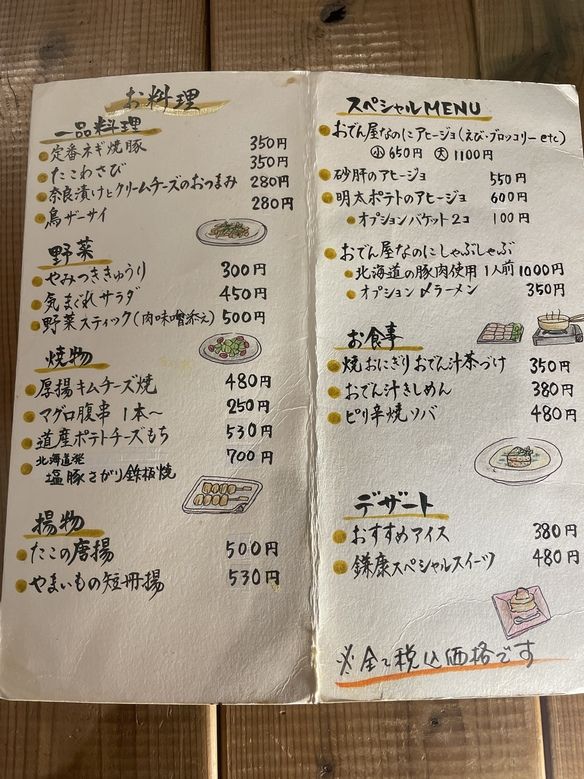 お料理
一品料理
定番ネギ焼豚 350円
たこわさび 350円
奈良漬けとクリームチーズのおつまみ 280円
鳥ザーサイ 280円
野菜
やみつききゅうり 300円
気まぐれサラダ 450円
野菜スティック(肉味噌添え) 500円
焼物
厚揚キムチーズ焼 480円
マグロ腹串 1本~ 250円
道産ポテトチーズもち 530円
北海道発 700円
塩豚さがり鉄板焼
揚物
たこの唐揚 500円
やまいもの短冊揚 530円
スペシャルMENU
おでん屋なのにアヒージョ(えび・ブロッコリーetc)
小650円 大1100円
砂肝のアヒージョ 550円
明太ポテトのアヒージョ 600円
オプションバケット2コ 100円
おでん屋なのにしゃぶしゃぶ
北海道の豚肉使用 1人前 1000円
オプション〆ラーメン 350円
お食事
焼おにぎりおでん汁茶づけ 350円
おでん汁きしめん 380円
ピリ辛焼ソバ 480円
デザート
おすすめアイス 380円
鎌康スペシャルスイーツ 480円
※全て税込価格です